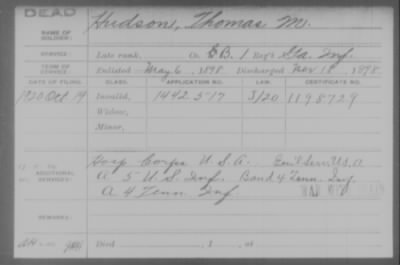 DEAD
NAME OF SOLDIER: Hudson, Thomas M.
SERVICE: Late rank, Co. E B. 1 Reg't Ga. Inf.
TERM OF SERVICE: Enlisted May 6, 1898. Discharged Nov 18, 1898.
DATE OF FILING. CLASS. APPLICATION NO. LAW. CERTIFICATE NO.
1920 Oct 19 Invalid, 1442517 S/20 1198729
Widow,
Minor,
ADDITIONAL SERVICES: Hosp Corps U.S.A.
A 5 U.S. Inf. Band 4 Tenn. Inf
A 4 Tenn. Inf
REMARKS:
Died , 1 , at